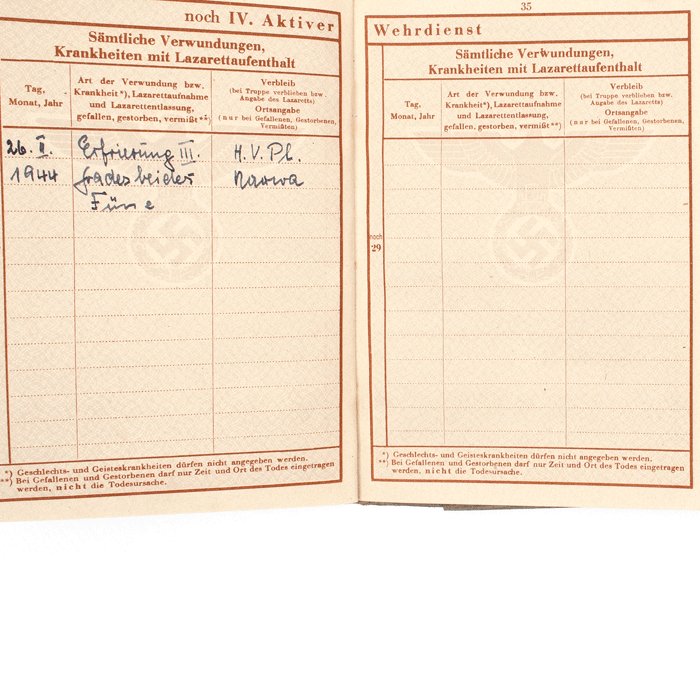 noch IV. Aktiver
Sämtliche Verwundungen,
Krankheiten mit Lazarettaufenthalt
Tag,
Monat, Jahr
Art der Verwundung bzw.
Krankheit*), Lazarettaufnahme
und Lazarettentlassung,
gefallen, gestorben, vermißt**)
Verbleib
(bei Truppe verblieben bzw.
Angabe des Lazaretts)
Ortsangabe
(nur bei Gefallenen, Gestorbenen,
Vermißten)
26. II. Erfrierung III. H.V.Pl.
1944 Grades beider Narwa
Füße
*) Geschlechts- und Geisteskrankheiten dürfen nicht angegeben werden.
**) Bei Gefallenen und Gestorbenen darf nur Zeit und Ort des Todes eingetragen
werden, nicht die Todesursache.
35
Wehrdienst
Sämtliche Verwundungen,
Krankheiten mit Lazarettaufenthalt
Tag,
Monat, Jahr
Art der Verwundung bzw.
Krankheit*), Lazarettaufnahme
und Lazarettentlassung,
gefallen, gestorben, vermißt**)
Verbleib
(bei Truppe verblieben bzw.
Angabe des Lazaretts)
Ortsangabe
(nur bei Gefallenen, Gestorbenen,
Vermißten)
noch
29
*) Geschlechts- und Geisteskrankheiten dürfen nicht angegeben werden.
**) Bei Gefallenen und Gestorbenen darf nur Zeit und Ort des Todes eingetragen
werden, nicht die Todesursache.